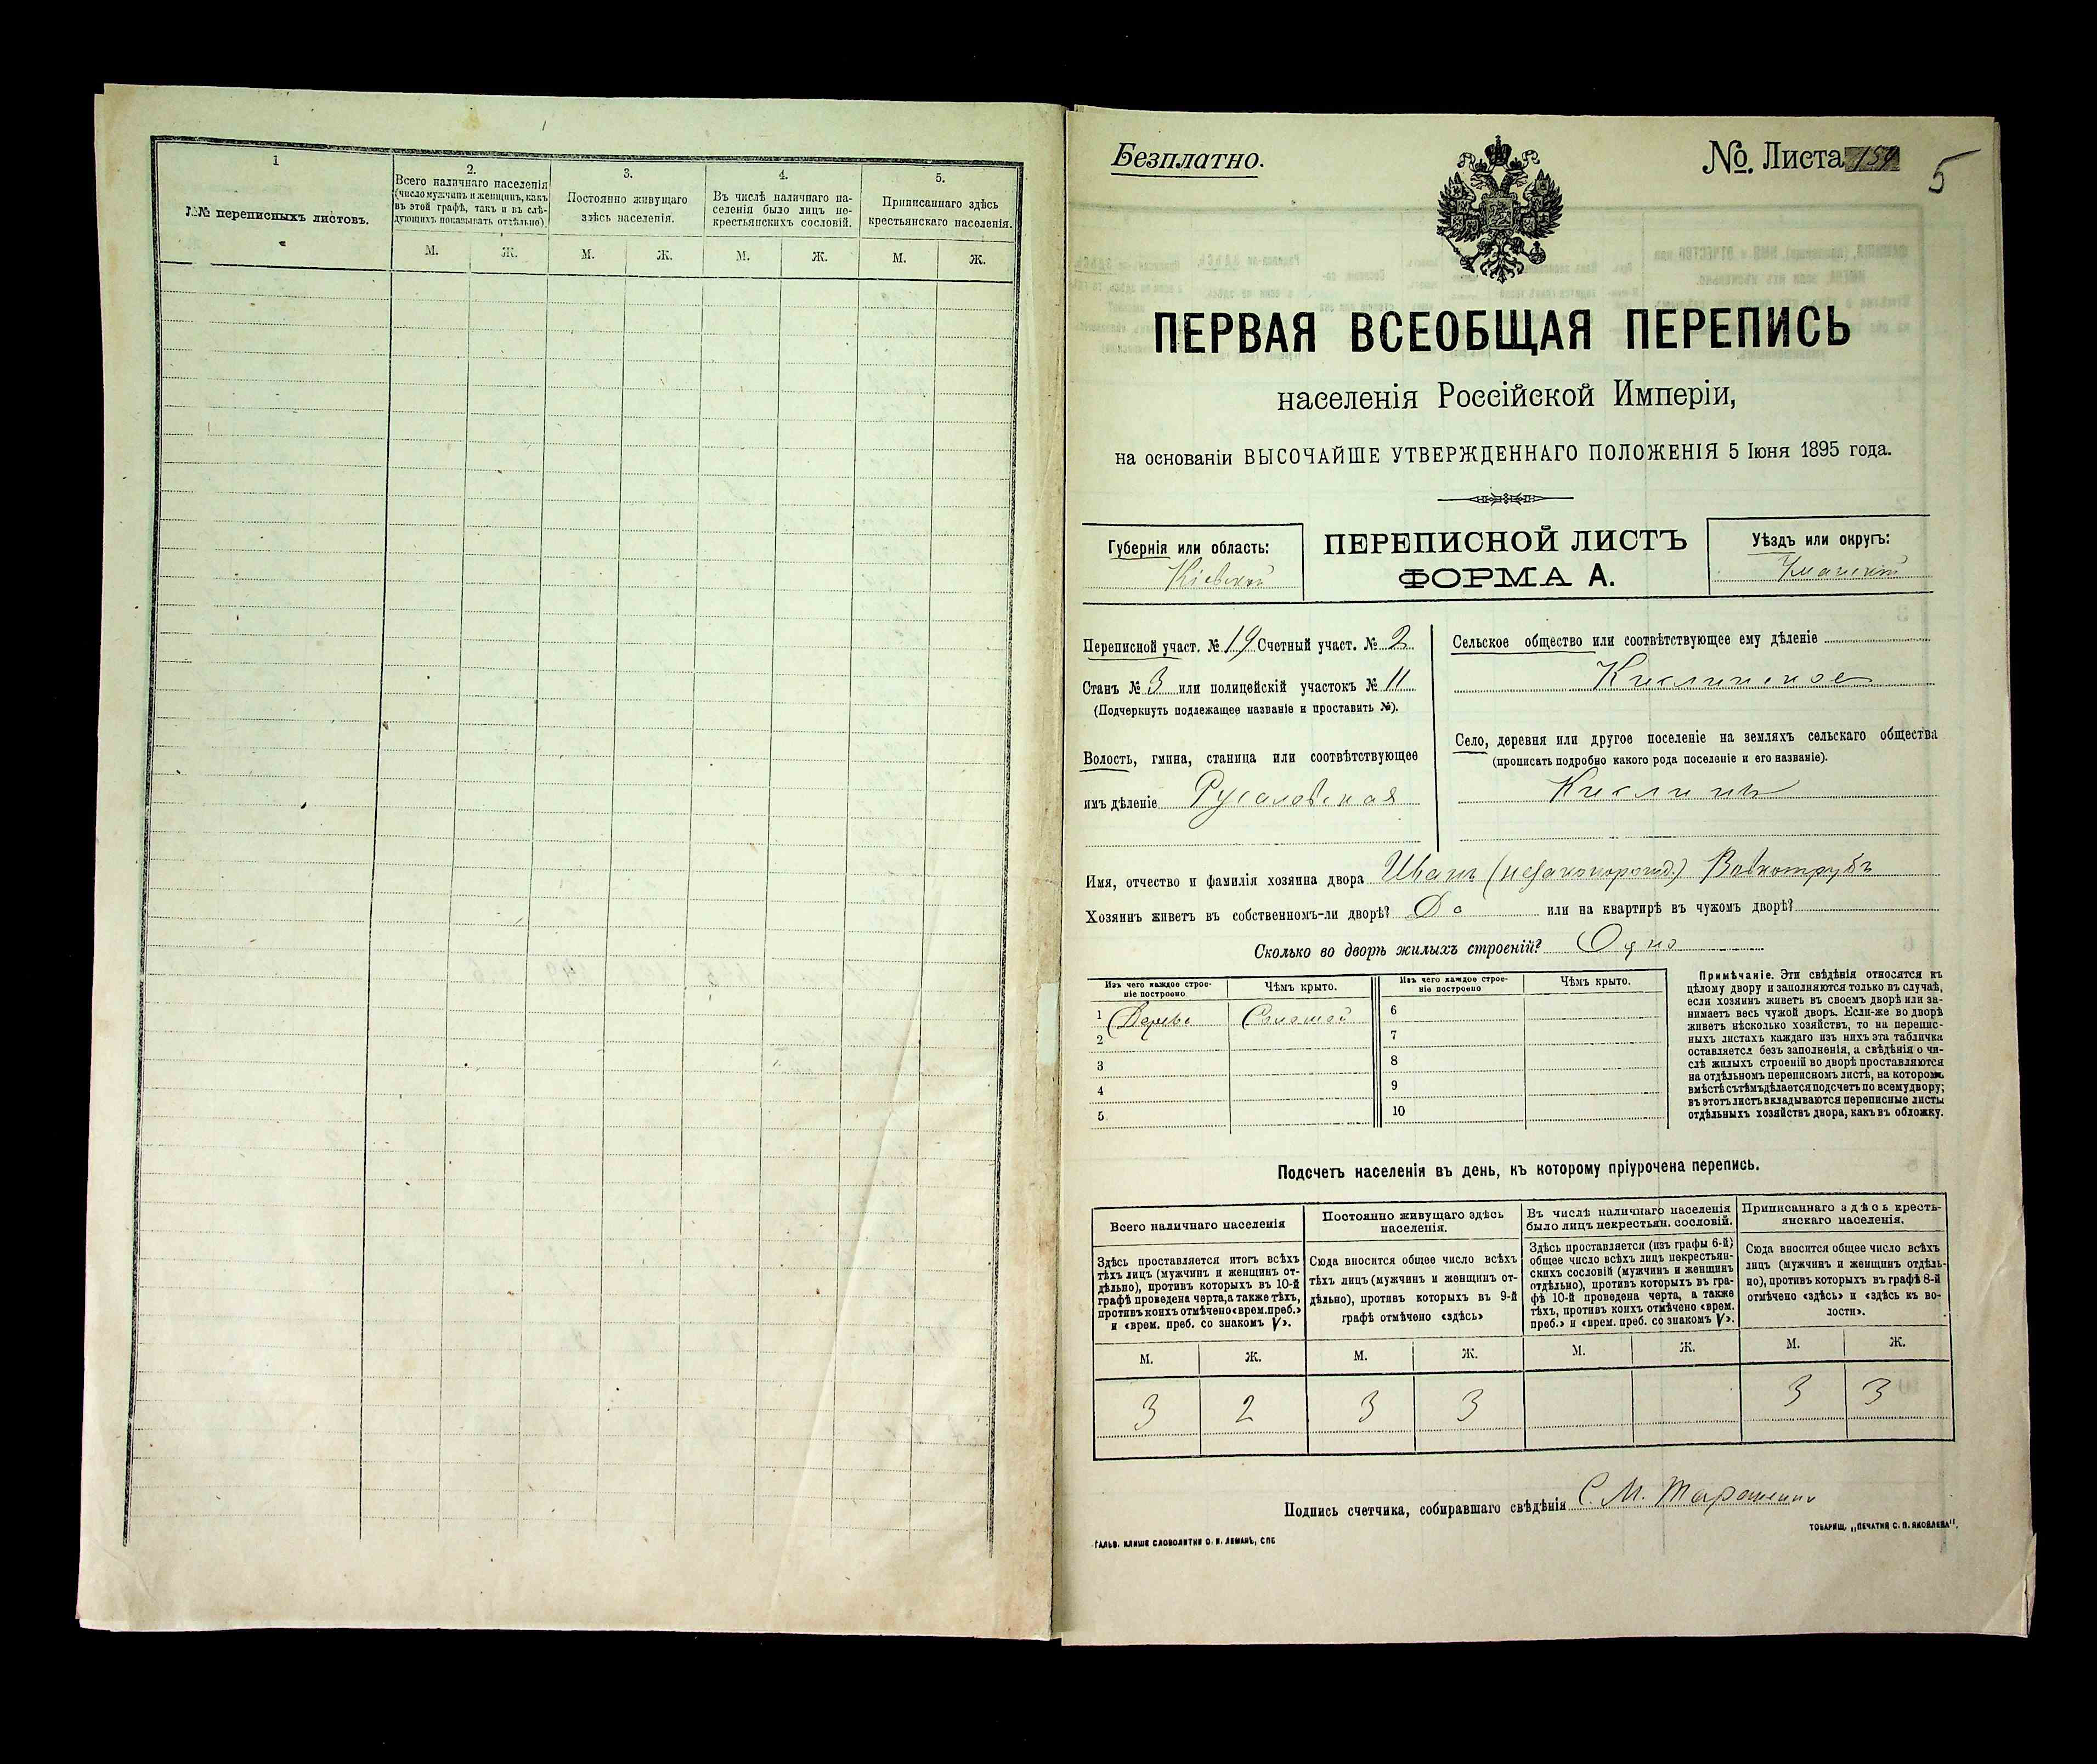 1
№№ переписныхъ листовъ.
2.
Всего наличнаго населенія
(число мужчинъ и женщинъ, какъ
въ этой графѣ, такъ и въ слѣ-
дующихъ показывать отдѣльно)
3.
Постоянно живущаго
здѣсь населенія.
4.
Въ числѣ наличнаго на-
селенія было лицъ не-
крестьянскихъ сословій.
5.
Приписаннаго здѣсь
крестьянскаго населенія.
М. Ж. М. Ж. М. Ж. М. Ж.
Безплатно.
№. Листа 5
ПЕРВАЯ ВСЕОБЩАЯ ПЕРЕПИСЬ
населенія Россійской Имперіи,
на основаніи ВЫСОЧАЙШЕ УТВЕРЖДЕННАГО ПОЛОЖЕНІЯ 5 Іюня 1895 года.
Губернія или область:
Кіевской
ПЕРЕПИСНОЙ ЛИСТЪ
ФОРМА А.
Уѣздъ или округъ:
Уманскій
Переписной участ. № 19 Счетный участ. № 2
Станъ № 3 или полицейскій участокъ № 11
(Подчеркнуть подлежащее названіе и проставить №).
Волость, гмина, станица или соотвѣтствующее
имъ дѣленіе Русаловская
Сельское общество или соотвѣтствующее ему дѣленіе
Кислинское
Село, деревня или другое поселеніе на земляхъ сельскаго общества
(прописать подробно какого рода поселеніе и его названіе).
Кислинъ
Имя, отчество и фамилія хозяина двора Иванъ (незаконорожд.) Вовкотрубъ
Хозяинъ живетъ въ собственномъ-ли дворѣ? Да или на квартирѣ въ чужомъ дворѣ?
Сколько во дворѣ жилыхъ строеній? Одно
Изъ чего каждое строе-
ніе построено
Чѣмъ крыто.
Изъ чего каждое строе-
ніе построено
Чѣмъ крыто.
1 Дерева Соломой 6
2 7
3 8
4 9
5. 10
Примѣчаніе. Эти свѣдѣнія относятся къ
цѣлому двору и заполняются только въ случаѣ,
если хозяинъ живетъ въ своемъ дворѣ или за-
нимаетъ весь чужой дворъ. Если-же во дворѣ
живетъ нѣсколько хозяйствъ, то на перепис-
ныхъ листахъ каждаго изъ нихъ эта табличка
оставляется безъ заполненія, а свѣдѣнія о чи-
слѣ жилыхъ строеній во дворѣ проставляются
на отдѣльномъ переписномъ листѣ, на которомъ
вмѣстѣ съ тѣмъ дѣлается подсчетъ по всему двору;
въ этотъ листъ вкладываются переписные листы
отдѣльныхъ хозяйствъ двора, какъ въ обложку.
Подсчетъ населенія въ день, къ которому пріурочена перепись.
Всего наличнаго населенія
Здѣсь проставляется итогъ всѣхъ
тѣхъ лицъ (мужчинъ и женщинъ от-
дѣльно), противъ которыхъ въ 10-й
графѣ проведена черта, а также тѣхъ,
противъ коихъ отмѣчено «врем. преб.»
и «врем. преб. со знакомъ V».
Постоянно живущаго здѣсь
населенія.
Сюда вносится общее число всѣхъ
тѣхъ лицъ (мужчинъ и женщинъ от-
дѣльно), противъ которыхъ въ 9-й
графѣ отмѣчено «здѣсь»
Въ числѣ наличнаго населенія
было лицъ некрестьян. сословій.
Здѣсь проставляется (изъ графы 6-й)
общее число всѣхъ лицъ некрестьян-
скихъ сословій (мужчинъ и женщинъ
отдѣльно), противъ которыхъ въ гра-
фѣ 10-й проведена черта, а также
тѣхъ, противъ коихъ отмѣчено «врем.
преб.» и «врем. преб. со знакомъ V».
Приписаннаго здѣсь кресть-
янскаго населенія.
Сюда вносится общее число всѣхъ
лицъ (мужчинъ и женщинъ отдѣль-
но), противъ которыхъ въ графѣ 8-й
отмѣчено «здѣсь» и «здѣсь къ во-
лости».
М. Ж. М. Ж. М. Ж. М. Ж.
3 2 3 3 3 3
Подпись счетчика, собиравшаго свѣдѣнія С. М.
ГАЛЬВ. КЛИШЕ СЛОВОЛИТНИ О. И. ЛЕМАНЪ, СПБ
ТОВАРИЩ. „ПЕЧАТНЯ С. П. ЯКОВЛЕВА".